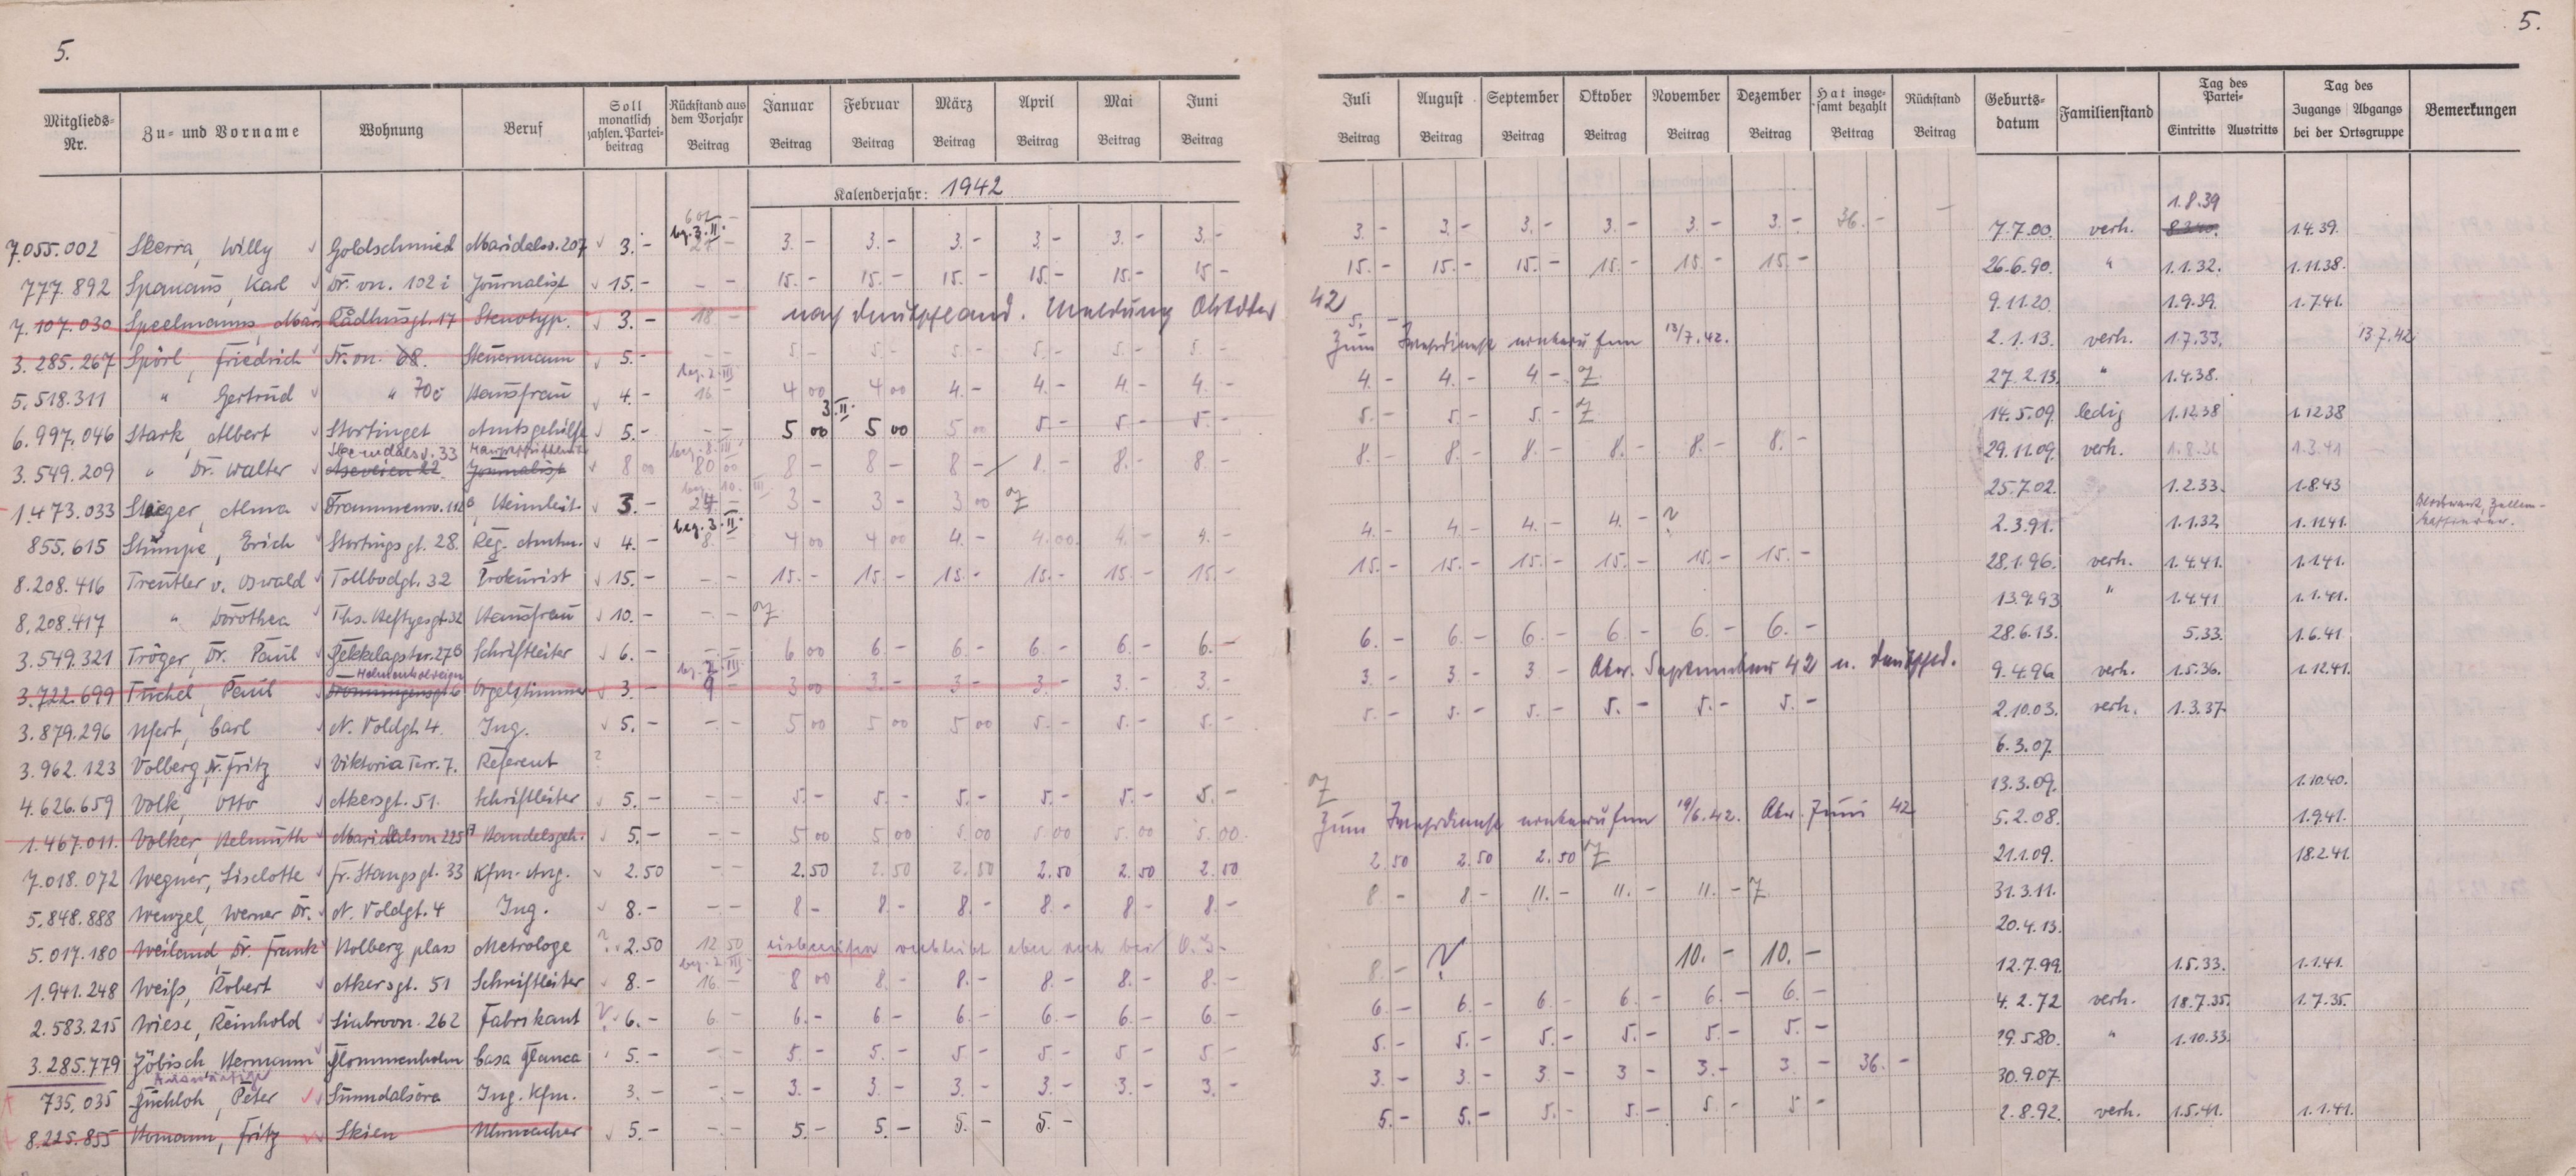 5.
5.
Mitglieds-Nr. Zu- und Vorname Wohnung Beruf Soll monatlich zahlen. Partei-beitrag Rückstand aus dem Vorjahr Beitrag Januar Beitrag Februar Beitrag März Beitrag April Beitrag Mai Beitrag Juni Beitrag Juli Beitrag August Beitrag September Beitrag Oktober Beitrag November Beitrag Dezember Beitrag Hat insge-samt bezahlt Beitrag Rückstand Beitrag Geburts-datum Familienstand Tag des Partei- Eintritts Austritts Tag des Zugangs Abgangs bei der Ortsgruppe Bemerkungen
Kalenderjahr: 1942
1.8.39
7.055.002 Skerra, Willy Goldschmied Maridalsv. 207 3.- bez. 3.II. 3.- 3.- 3.- 3.- 3.- 3.- 3.- 3.- 3.- 3.- 3.- 3.- 36.- - 7.7.00. verh. 1.4.39.
777.892 Spanaus, Karl Dr. vn. 102 i Journalist 15.- - - 15.- 15.- 15.- 15.- 15.- 15- 15.- 15.- 15.- 15.- 15.- 15.- 26.6.90. " 1.1.32. 1.11.38.
7.107.030 Speelmanns, Rådhusgt. 17 Stenotyp. 3.- 18 - nach Deutschland. Meldung Oktober 42 9.11.20. 1.9.39. 1.7.41.
3.285.267 Spörl, Friedrich Dr. vn. 68. Steuermann 5.- - - 5.- 5.- 5.- 5.- 5.- 5.- 5.- Zum Wehrdienst einberufen 13/7.42. 2.1.13. verh. 1.7.33. 13.7.42
5.518.311 " Gertrud " 70c Hausfrau 4.- bez. 2.III 16 - 4 00 4 00 4.- 4.- 4.- 4.- 4.- 4.- 4.- 27.2.13. " 1.4.38.
6.997.046 Stark, Albert Stortinget Amtsgehilfe 5.- - - 3.II. 5 00 5 00 5 00 5.- 5.- 5.- 5.- 5.- 5.- 14.5.09. ledig 1.12.38 1.12.38
3.549.209 " Dr. Walter 33 Journalist 8 00 80 00 8 - 8 - 8 - 8.- 8.- 8.- 8.- 8.- 8.- 8.- 8.- 8.- 29.11.09. verh. 1.8.36 1.3.41
1.473.033 Steger, Alma Heimleit. 3.- bez. 10. III 24 - 3 - 3 - 3 00 25.7.02. 1.2.33. 1.8.43
855.615 Stumpe, Erich Stortingsgt. 28. Reg. Amtm. 4.- bez. 3.II. 8.- 4 00 4 00 4.- 4.00. 4.- 4.- 4.- 4.- 4.- 4.- ? 2.3.91. 1.1.32 1.11.41.
8.208.416 Treutler v. Oswald Tollbodgt. 32 Prokurist 15.- - - 15.- 15.- 15.- 15.- 15.- 15.- 15.- 15.- 15.- 15.- 15.- 15.- 28.1.96. verh. 1.4.41. 1.1.41.
8.208.417 " Dorothea Ths. Heftyesgt. 32 Hausfrau 10.- - - 13.9.93 " 1.4.41 1.1.41.
3.549.321 Tröger, Dr. Paul Schriftleiter 6.- - - 6 00 6.- 6.- 6.- 6.- 6.- 6.- 6.- 6.- 6.- 6.- 6.- 28.6.13. 5.33. 1.6.41
3.722.699 Tuchel, Paul Holmenkolveien Orgelstimmer 3.- bez. 2.III. 9 - 3 00 3.- 3.- 3.- 3.- 3.- 3.- 3.- 3 - Abw. September 42 n. Deutschld. 9.4.96. verh. 1.5.36. 1.12.41.
3.879.296 Ufert, Carl N. Voldgt. 4. Ing. 5.- - - 5 00 5 00 5 00 5.- 5.- 5.- 5.- 5.- 5.- 5.- 5.- 5.- 2.10.03. verh. 1.3.37.
3.962.123 Volberg, Dr. Fritz Viktoria Terr. 7. Referent ? 6.3.07.
4.626.659 Volk, Otto Akersgt. 51. Schriftleiter 5.- - - 5.- 5.- 5.- 5.- 5.- 5.- 13.3.09. 1.10.40.
1.467.011. Volker, Helmuth Maridalsvn 225 Handelsgeh. 5.- - - 5 00 5 00 5.00 5.00 5.00 5.00. Zum Wehrdienst einberufen 19/6.42. Abw. Juni 42 5.2.08. 1.9.41.
7.018.072 Wegner, Liselotte Fr. Stangsgt. 33 Kfm. Ang. 2.50 - - 2.50 2.50 2.50 2.50 2.50 2.50 2 50 2.50 2.50 21.1.09. 18.2.41.
5.848.888 Wenzel, Werner Dr. N. Voldgt. 4 Ing. 8.- - - 8 - 8.- 8.- 8.- 8.- 8.- 8 - 8 - 11.- 11.- 11.- 31.3.11.
5.017.180 Weiland, Dr. Frank Holberg plass Metrologe ? 2.50 12 50 verbleibt aber noch bei O.G. 20.4.13.
1.941.248 Weiß, Robert Akersgt. 51 Schriftleiter 8.- bez. 2.III 16.- 8 00 8.- 8.- 8.- 8.- 8.- 8.- ? 10.- 10.- 12.7.99. 1.5.33. 1.1.41.
2.583.215 Wiese, Reinhold 262 Fabrikant ? 6.- 6.- 6.- 6.- 6.- 6.- 6.- 6.- 6.- 6.- 6.- 6.- 6.- 6.- 4.2.72 verh. 18.7.35. 1.7.35.
3.285.779 Zöbisch Hermann Casa Blanca 5.- - - 5.- 5.- 5.- 5.- 5.- 5.- 5.- 5.- 5.- 5.- 5.- 5.- 29.5.80. " 1.10.33.
Auswärtige
735.035 Züchloh, Peter Sunndalsöra Ing. Kfm. 3.- - - 3.- 3.- 3.- 3.- 3.- 3.- 3.- 3.- 3.- 3 - 3.- 3.- 36.- 30.9.07.
8.225.855 Homann, Fritz Skien Uhrmacher 5.- - - 5.- 5.- 5.- 5.- 5.- 5.- 5.- 5.- 5.- 5 - 2.8.92. verh. 1.5.41. 1.1.41.